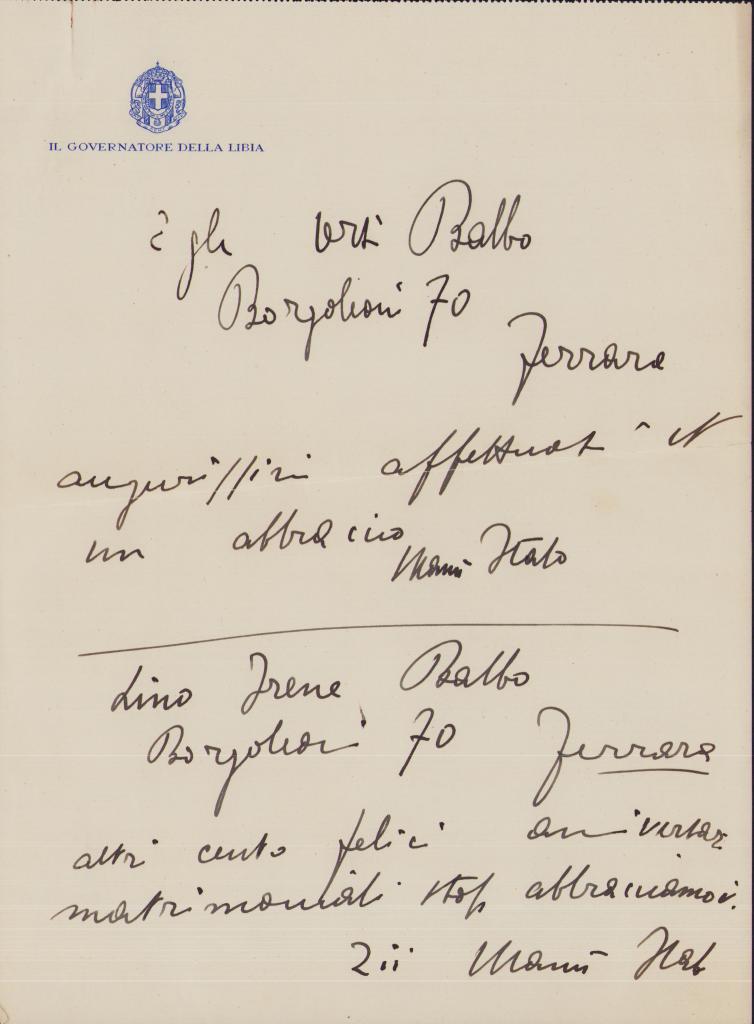 IL GOVERNATORE DELLA LIBIA
gli Balbo
Borgoleoni 70
Ferrara
augurissimi affettuosi
un abbraccio
Manù Italo
Lino Irene Balbo
Borgoleoni 70 Ferrara
altri cento felici anniversar
matrimoniali stop abbracciamovi.
Zii Manù Italo